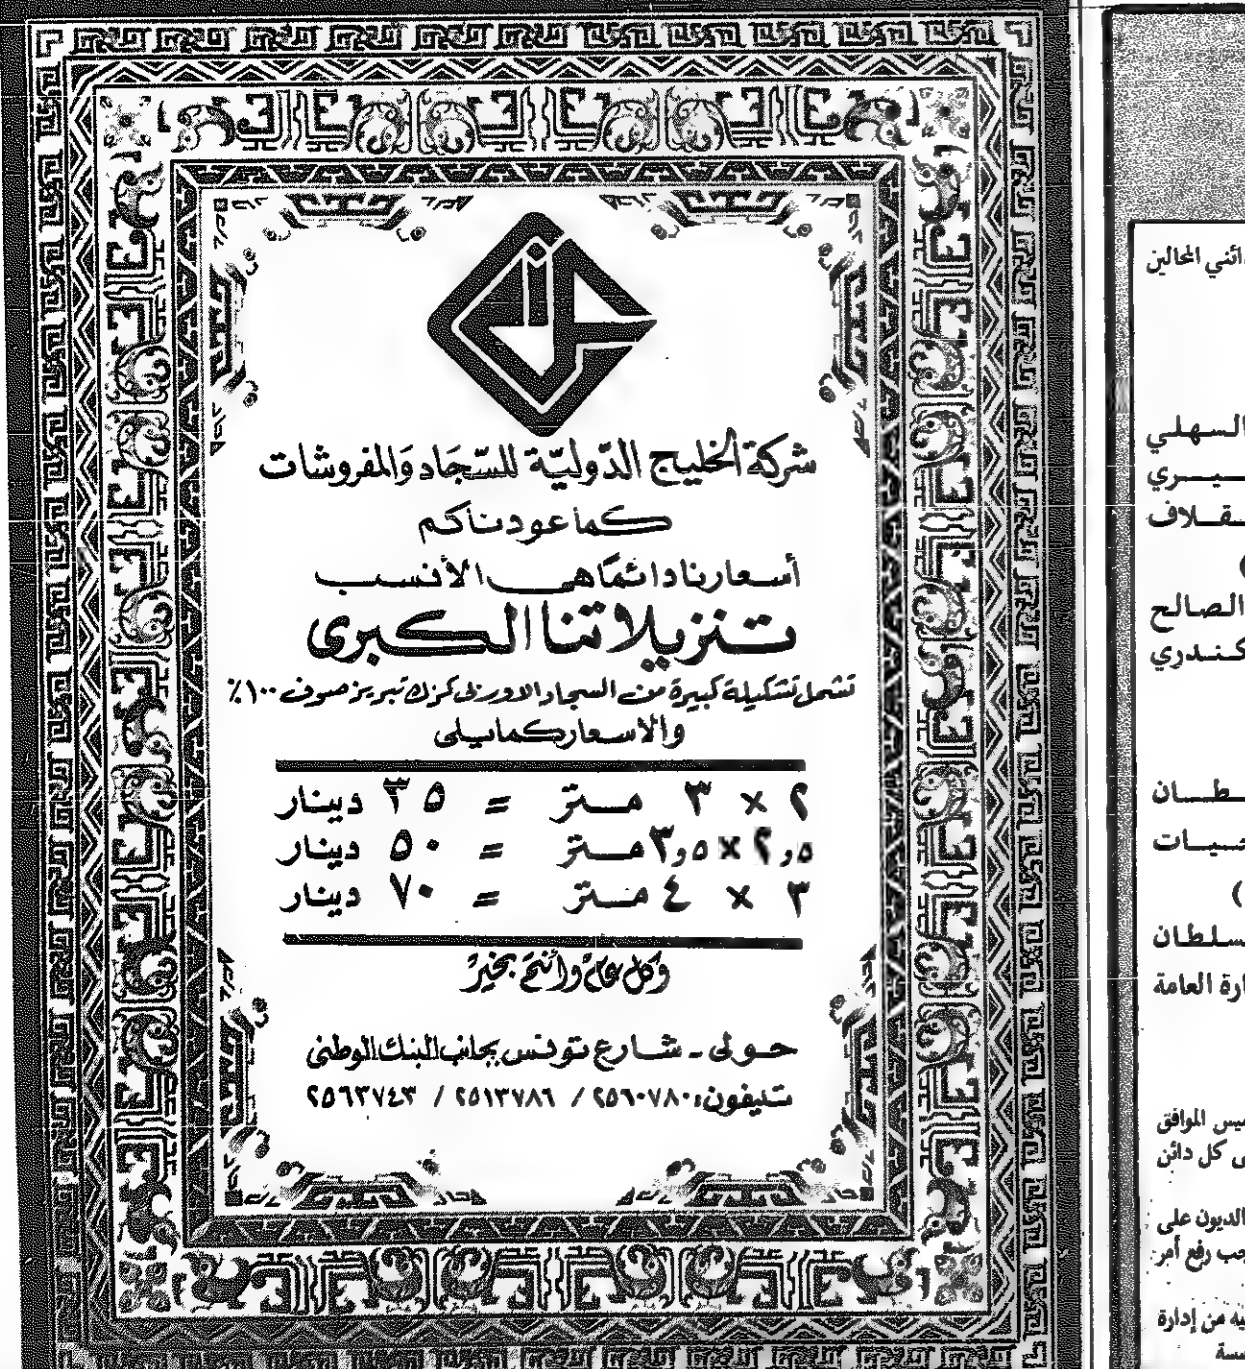 شركة الخليج الدّوليّة للسّجاد والمفروشات
كما عودناكم
أسعارنا دائمًا هي الأنسب
تنزيلاتنا الكبرى
تشمل تشكيلة كبيرة من السجاد الاوربي كرك تبريز صوف ١٠٠٪
والاسعار كمايلي
٢ × ٣ متر = ٣٥ دينار
٢,٥ × ٣,٥ متر = ٥٠ دينار
٣ × ٤ متر = ٧٠ دينار
وكل عام وأنتم بخير
حولي - شارع تونس بجانب البنك الوطني
تليفون: ٢٥٦٠٧٨٠ / ٢٥١٣٧٨٦ / ٢٥٦٣٧٤٣
المحالين
السهلي
الصالح
سلطان
العامة
الموافق
كل دائن
الديون على
رفع أمر
من إدارة